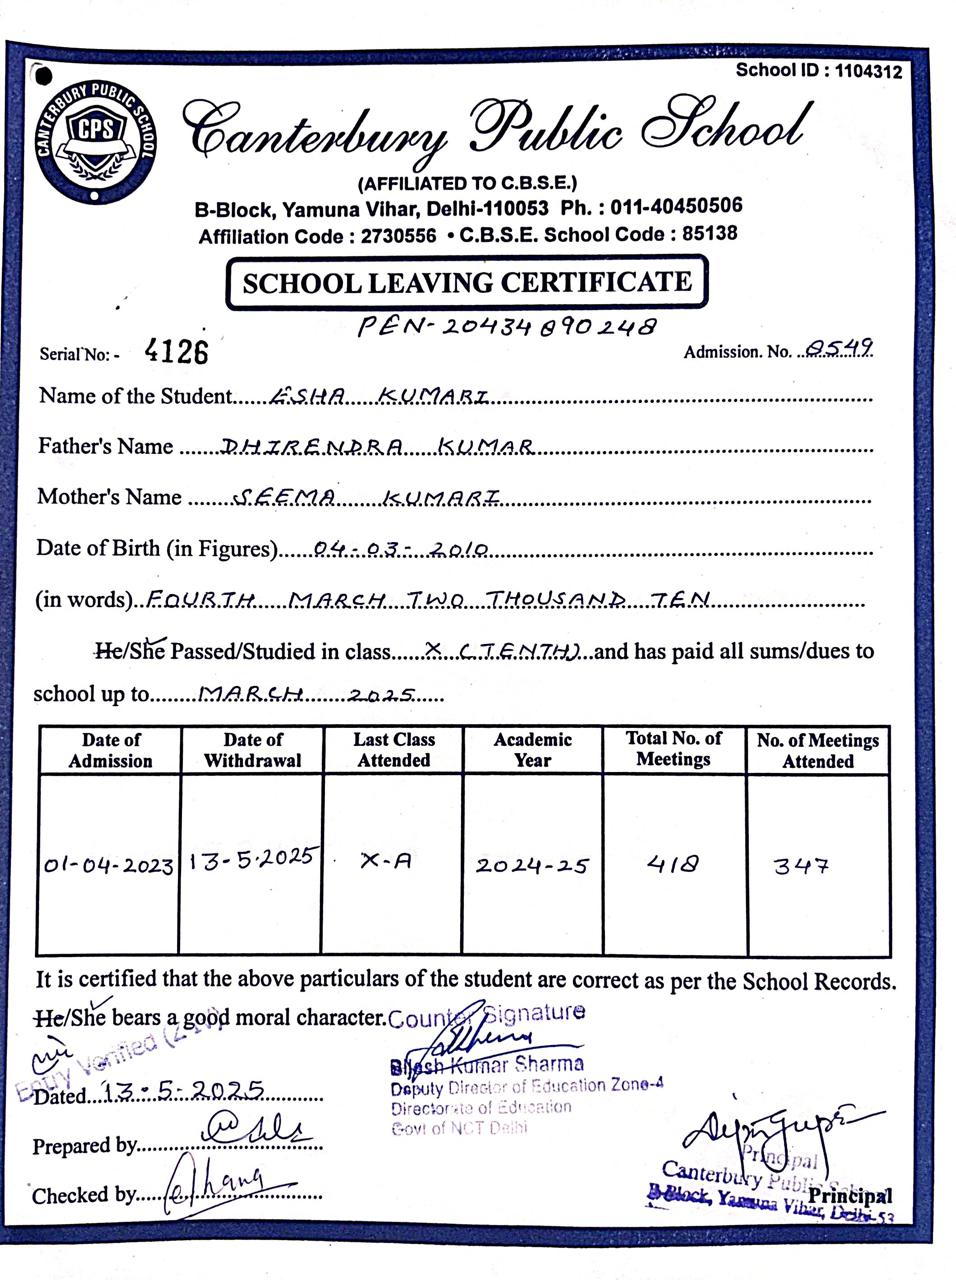 School ID : 1104312
CANTERBURY PUBLIC SCHOOL
CPS
Canterbury Public School
(AFFILIATED TO C.B.S.E.)
B-Block, Yamuna Vihar, Delhi-110053 Ph. : 011-40450506
Affiliation Code : 2730556 • C.B.S.E. School Code : 85138
SCHOOL LEAVING CERTIFICATE
PEN-20434890248
Serial No: - 4126 Admission. No. ..8549
Name of the Student......ESHA KUMARI
Father's Name .......DHIRENDRA KUMAR
Mother's Name .......SEEMA KUMARI
Date of Birth (in Figures)......04-03-2010
(in words)..FOURTH MARCH TWO THOUSAND TEN
He/She Passed/Studied in class.....X (TENTH)...and has paid all sums/dues to
school up to........MARCH 2025.....
Date of Admission Date of Withdrawal Last Class Attended Academic Year Total No. of Meetings No. of Meetings Attended
01-04-2023 13-5-2025 X-A 2024-25 418 347
It is certified that the above particulars of the student are correct as per the School Records.
He/She bears a good moral character.
Counter Signature
Entry Verified
Bilesh Kumar Sharma
Deputy Director of Education Zone-4
Directorate of Education
Govt of NCT Delhi
Dated...13-5-2025
Prepared by
Checked by
Principal
Canterbury Public
B-Block, Yamuna Vihar, Delhi-53
Principal